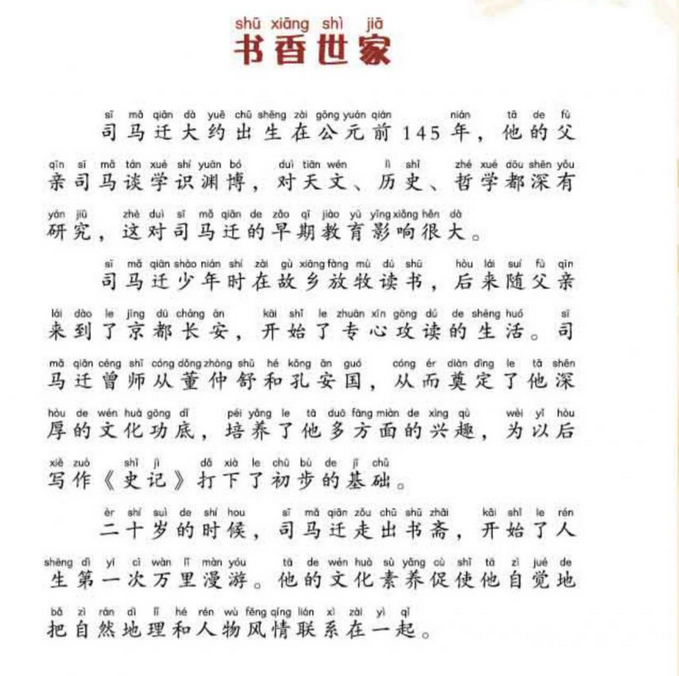 shū xiāng shì jiā
书香世家
sī mǎ qiān dà yuē chū shēng zài gōng yuán qián nián tā de fù
司马迁大约出生在公元前145年，他的父
qīn sī mǎ tán xué shí yuān bó duì tiān wén lì shǐ zhé xué dōu shēn yǒu
亲司马谈学识渊博，对天文、历史、哲学都深有
yán jiū zhè duì sī mǎ qiān de zǎo qī jiào yù yǐng xiǎng hěn dà
研究，这对司马迁的早期教育影响很大。
sī mǎ qiān shào nián shí zài gù xiāng fàng mù dú shū hòu lái suí fù qīn
司马迁少年时在故乡放牧读书，后来随父亲
lái dào le jīng dū cháng ān kāi shǐ le zhuān xīn gōng dú de shēng huó sī
来到了京都长安，开始了专心攻读的生活。司
mǎ qiān céng shī cóng dǒng zhòng shū hé kǒng ān guó cóng ér diàn dìng le tā shēn
马迁曾师从董仲舒和孔安国，从而奠定了他深
hòu de wén huà gōng dǐ péi yǎng le tā duō fāng miàn de xìng qù wèi yǐ hòu
厚的文化功底，培养了他多方面的兴趣，为以后
xiě zuò shǐ jì dǎ xià le chū bù de jī chǔ
写作《史记》打下了初步的基础。
èr shí suì de shí hou sī mǎ qiān zǒu chū shū zhāi kāi shǐ le rén
二十岁的时候，司马迁走出书斋，开始了人
shēng dì yí cì wàn lǐ màn yóu tā de wén huà sù yǎng cù shǐ tā zì jué de
生第一次万里漫游。他的文化素养促使他自觉地
bǎ zì rán dì lǐ hé rén wù fēng qíng lián xì zài yì qǐ
把自然地理和人物风情联系在一起。